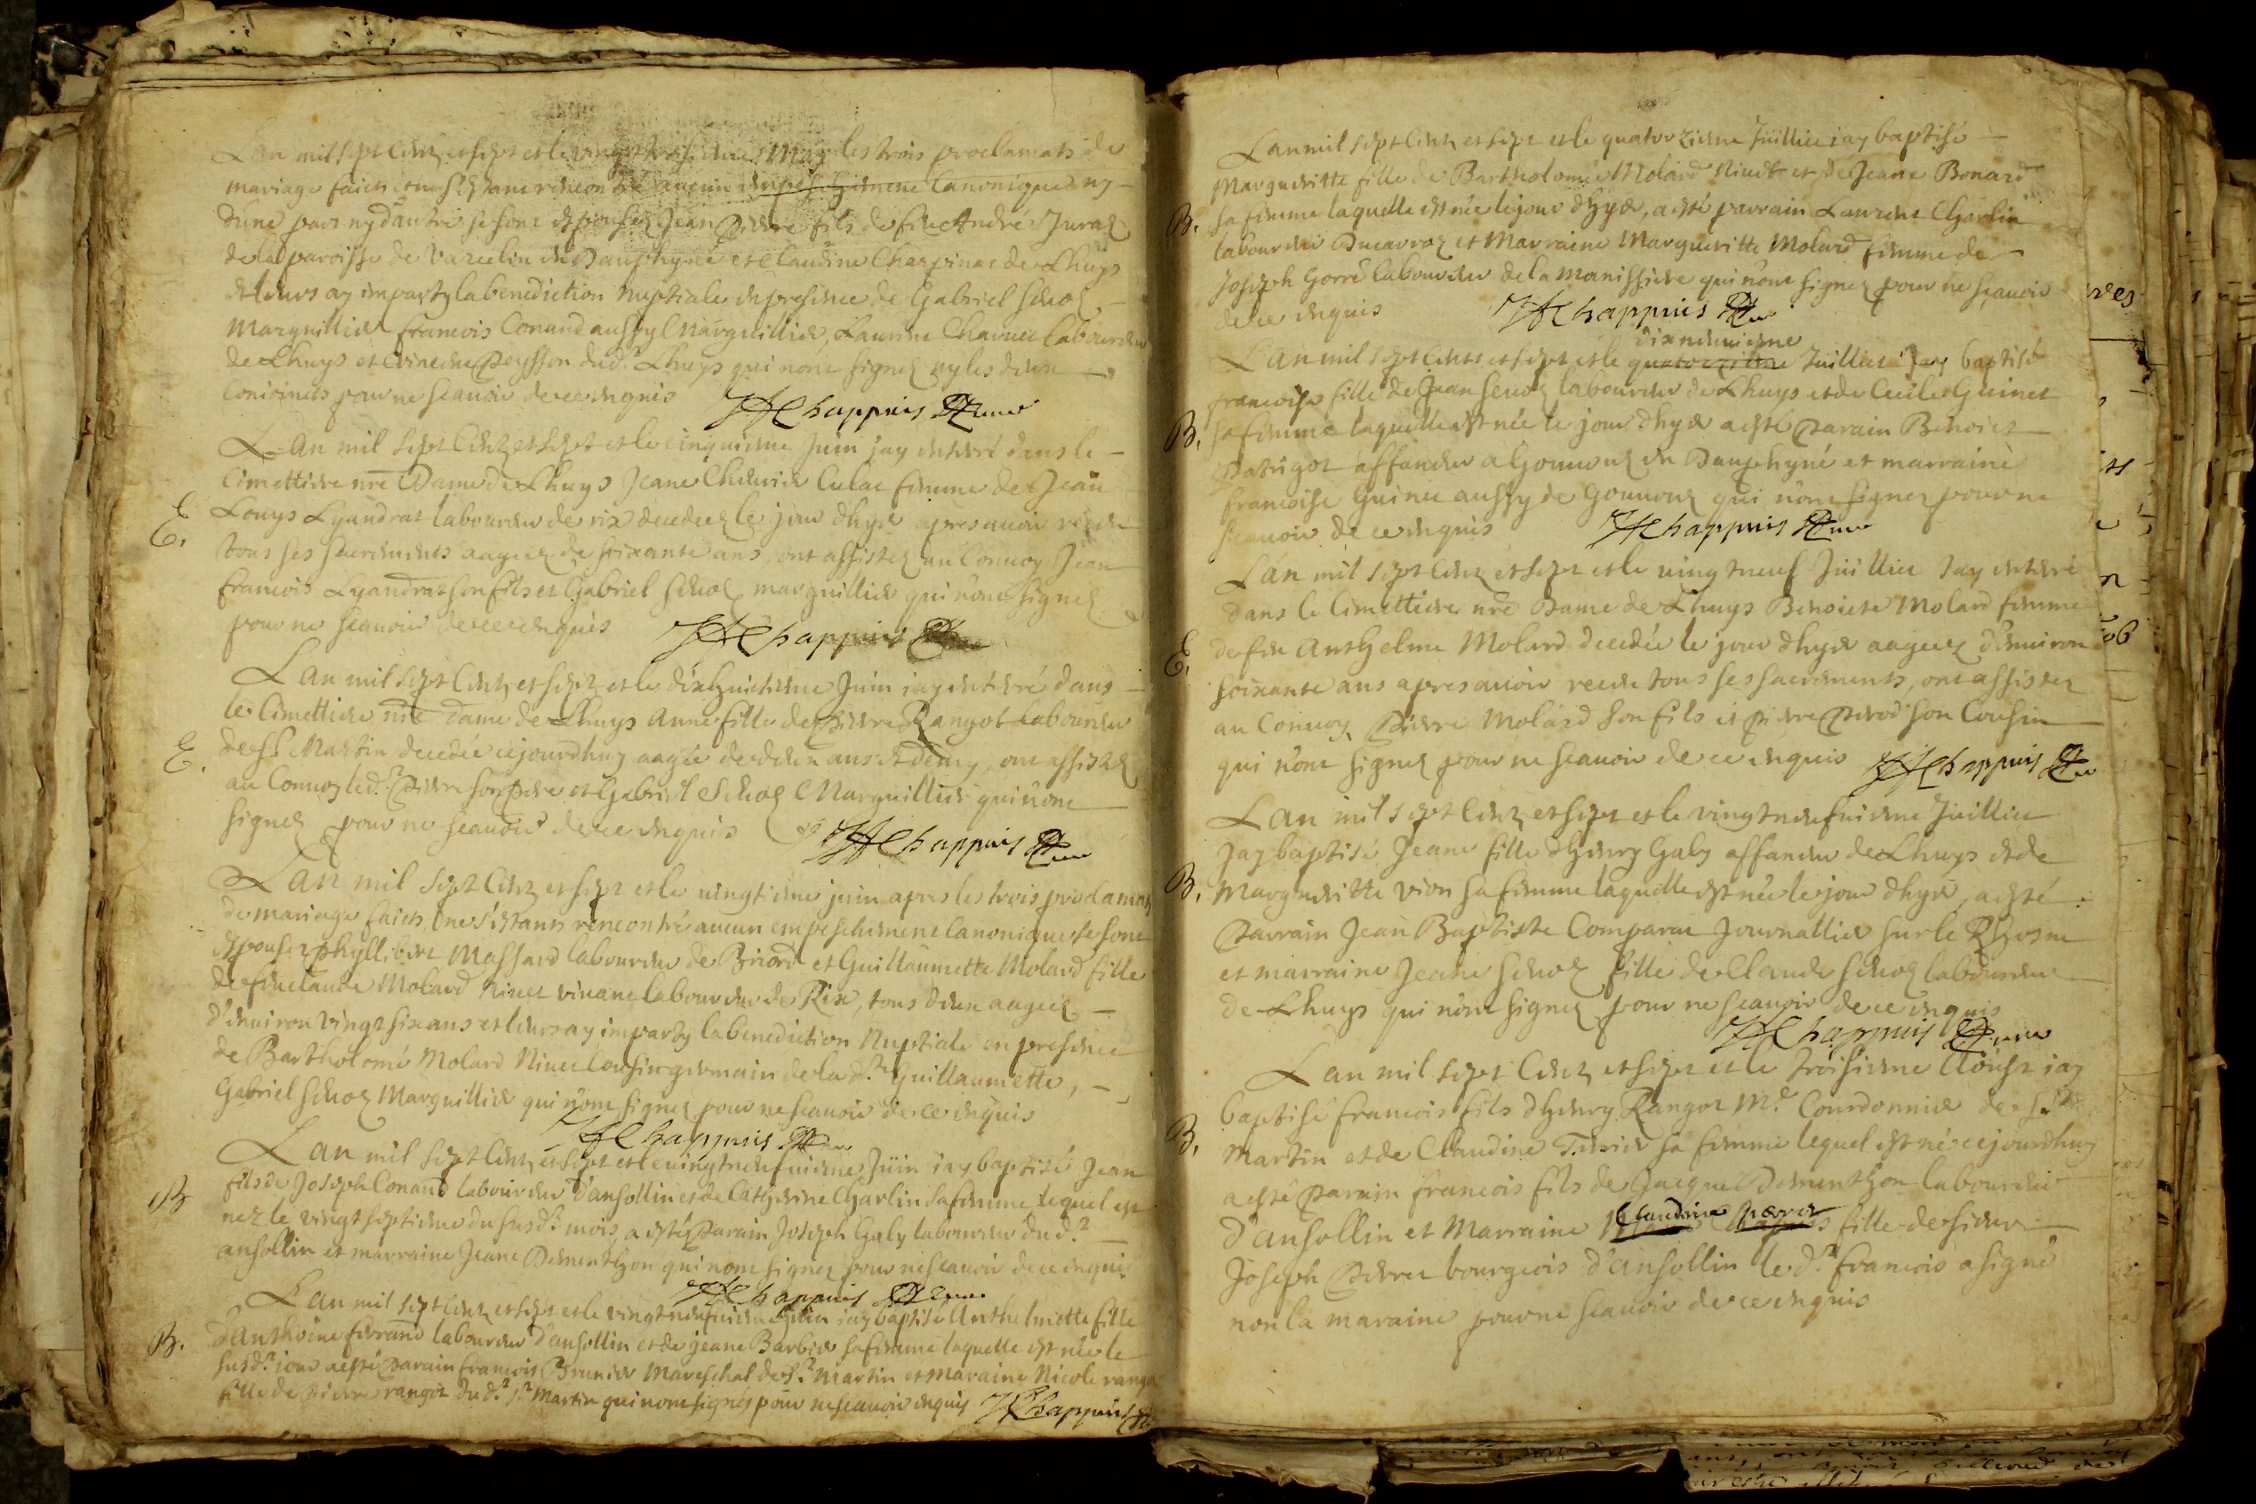 Lan mil sept Centz et sept et le vingt troisieme May les trois proclamats de
mariage faicts et ne sestant rencontré aucun empeschement Canonique ny
dune part ny dautre se sont espousez Jean Pierre fils de feu André Juraz
de la paroisse de Vazeelin en Dauphyné et Claudine Charpinat de Lhuys
et leurs ay imparty la benediction nuptiale en presence de Gabriel Schoz
Marguillier francois Conand aussy Marguillier, Laurent Charvet laboureur
de Lhuys et Peysson dud.t Lhuys qui nont signez ny les deux
Conioincts pour ne scauoir de ce enquis JHChappuis
Lan mil sept Centz et sept et le cinquieme Juin jay enterré dans le
Cimettiere nre Dame de Lhuys Jeane femme de Jean
Louys Lyandrat laboureur de rix decedez le jour dhyer apres auoir receu
E.
tous ses sacrements aagee de soixante ans, ont assistez au Conuoy Jean
francois Lyandrat son fils et Gabriel Schoz marguillier qui nont signez
pour ne scauoir de ce enquis JHChappuis
Lan mil sept Centz et sept et le dixhuictieme Juin iay enterré dans
le Cimettiere nre dame de Lhuys Anne fille de pierre Rangot laboureur
E.
de St Martin decedée cejourdhuy aagée de deux ans et demy, ont assistez
au Conuoy led.t Pierre son Pere et Gabriel Schoz Marguillier qui nont
signez pour ne scauoir de ce enquis JHChappuis
Lan mil sept Centz et sept et le uingtieme juin apres les trois proclamats
de mariage faicts, ne sestants rencontré aucun empeschement Canonique se sont
espousez phyllibert Massard laboureur de Briord et Guillaumette Molard fille
de feu Claude Molard Niuet viuant laboureur de Rix, tous deux aagees
d'enuiron vingt six ans et leurs ay imparty la benediction Nuptiale en presence
de Bartholomé Molard Niuet Cousin germain de la d.te Guillaumette,
Gabriel Schoz Marguillier qui nont signez pour ne scauoir de ce enquis
JHChappuis
Lan mil sept Centz et sept et le uingtneufuieme Juin iay baptisé Jean
B
fils de Joseph Conand laboureur d'ansollin et de Catherine Charlin sa femme lequel est
nez le vingt septieme du susd.t mois, a estez Parain Joseph Galy laboureur dud.t
ansollin et marraine Jeane Dementhon qui nont signez pour ne scauoir de ce enquis
JHChappuis
Lan mil sept Centz et sept et le vingtneufuieme Juin iay baptisé Anthelmette fille
B.
d'Anthoine ferrand laboureur d'ansollin et de jeane Barbier sa femme laquelle est née le
susd.t iour a esté Parain francois Brunier Mareschal de St Martin et maraine Nicole rangot
fille de Pierre rangot dud.t St Martin qui nont signés pour ne scauoir enquis JHChappuis
Lan mil sept Centz et sept et le quatorzieme Juillet iay baptisé
Margueritte fille de Bartholomé Molard Niuet et de Jeane Bonard
B.
sa femme laquelle est née le jour dhyer, a esté parrain Laurent Charlin
laboureur et Marraine Margueritte Molard femme de
Joseph Gorre laboureur de la Manissiere qui nont signez pour ne scauoir
de ce enquis JHChappuis
dixneuuieme
Lan mil sept Cents et sept et le quatorzieme Juillet Jay baptisé
francoise fille de Jean Schoz laboureur de Lhuys et de Cecile Guinet
B.
sa femme laquelle est née le jour dhyer a esté Parain Benoict
Patrigot affaneur a Gouuoux en Dauphyné et marraine
francoise Guinet aussy de Gouuoux qui nont signez pour ne
scauoir de ce enquis JHChappuis
Lan mil sept Centz et sept et le uingtneuf Juillet Jay enterré
dans le Cimettiere nre Dame de Lhuys Benoiste Molard femme
E.
de feu Anthelme Molard decedée le jour dhyer aagée d'enuiron
soixante ans apres auoir receu tous ses sacrements, ont assistez
au Conuoy Pierre Molard son fils et Pierre Perod son Cousin
qui nont signez pour ne scauoir de ce enquis JHChappuis
Lan mil sept Centz et sept et le vingtneufuieme Juillet
Jay baptisé Jeane fille dhenry Galy affaneur de Lhuys et de
B.
Margueritte Vion sa femme laquelle est née le jour dhyer, a esté
Parrain Jean Baptiste Comparat Journallier sur le Rhosne
et marraine Jeane Schoz fille de Claude Schoz laboureur
de Lhuys qui nont signez pour ne scauoir de ce enquis
JHChappuis
Lan mil sept Centz et sept et le troisieme Aoust iay
baptisé francois fils dhenry Rangot M.e Courdonnier de St
B.
Martin et de Claudine Terrier sa femme lequel est né cejourdhuy
a esté Parain francois fils de Jacque Dementhon laboureur
Claudine
d'ansollin et Marraine fille de sieur
Joseph Perret bourgeois d'ansollin le d.t francois a signé
non la maraine pour ne scauoir de ce enquis